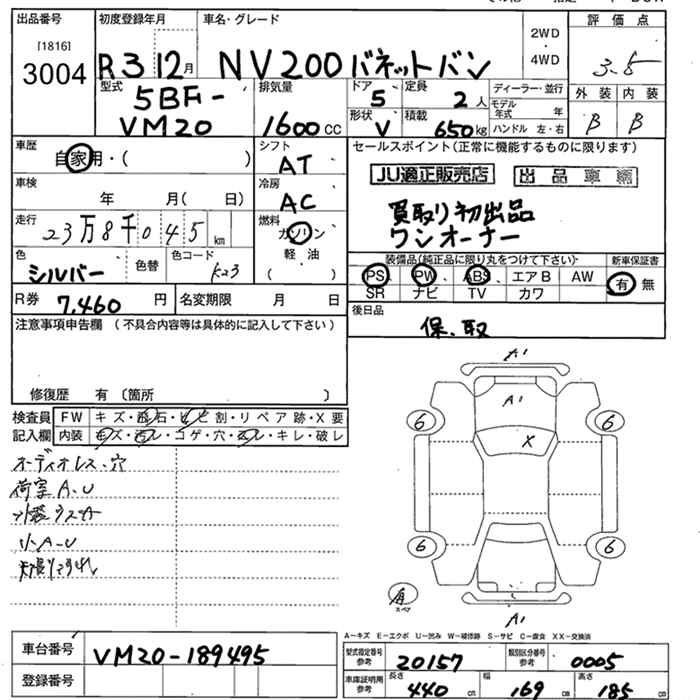 出品番号 初度登録年月 車名・グレード 評価点
[1816]
3004 R3 12月 NV200バネットバン 2WD・4WD 3.5
型式 5BF- VM20 排気量 1600cc ドア 5 定員 2人 ディーラー・並行 外装 内装
形状 V 積載 650kg モデル年式 年 ハンドル 左・右 B B
車歴 自家用・( ) シフト AT セールスポイント(正常に機能するものに限ります)
JU適正販売店 出品車輌
車検 年 月(日) 冷房 AC
買取り初出品
走行 23万8千045km 燃料 ガソリン
ワンオーナー
軽油
( )
色 シルバー 色替 色コード K23
装備品(純正品に限り丸をつけて下さい) 新車保証書
PS PW ABS エアB AW 有 無
SR ナビ TV カワ
R券 7,460円 名変期限 月 日
後日品
保、取
注意事項申告欄(不具合内容等は具体的に記入して下さい)
修復歴 有 〔箇所 〕
検査員 FW キズ・飛石・ヒビ割・リペア跡・X要
記入欄 内装 キズ・汚レ・コゲ・穴・スレ・キレ・破レ
オーディオレス・穴
荷室A.U
小A-U
A1
A1
X
6 6
6 6
有
スペア
A1
A-キズ E-エクボ U-凹み W-補修跡 S-サビ C-腐食 XX-交換済
車台番号 VM20-189495
型式指定番号 参考 20157 類別区分番号 参考 0005
登録番号
車庫証明用 参考 長さ 440cm 幅 169cm 高さ 185cm